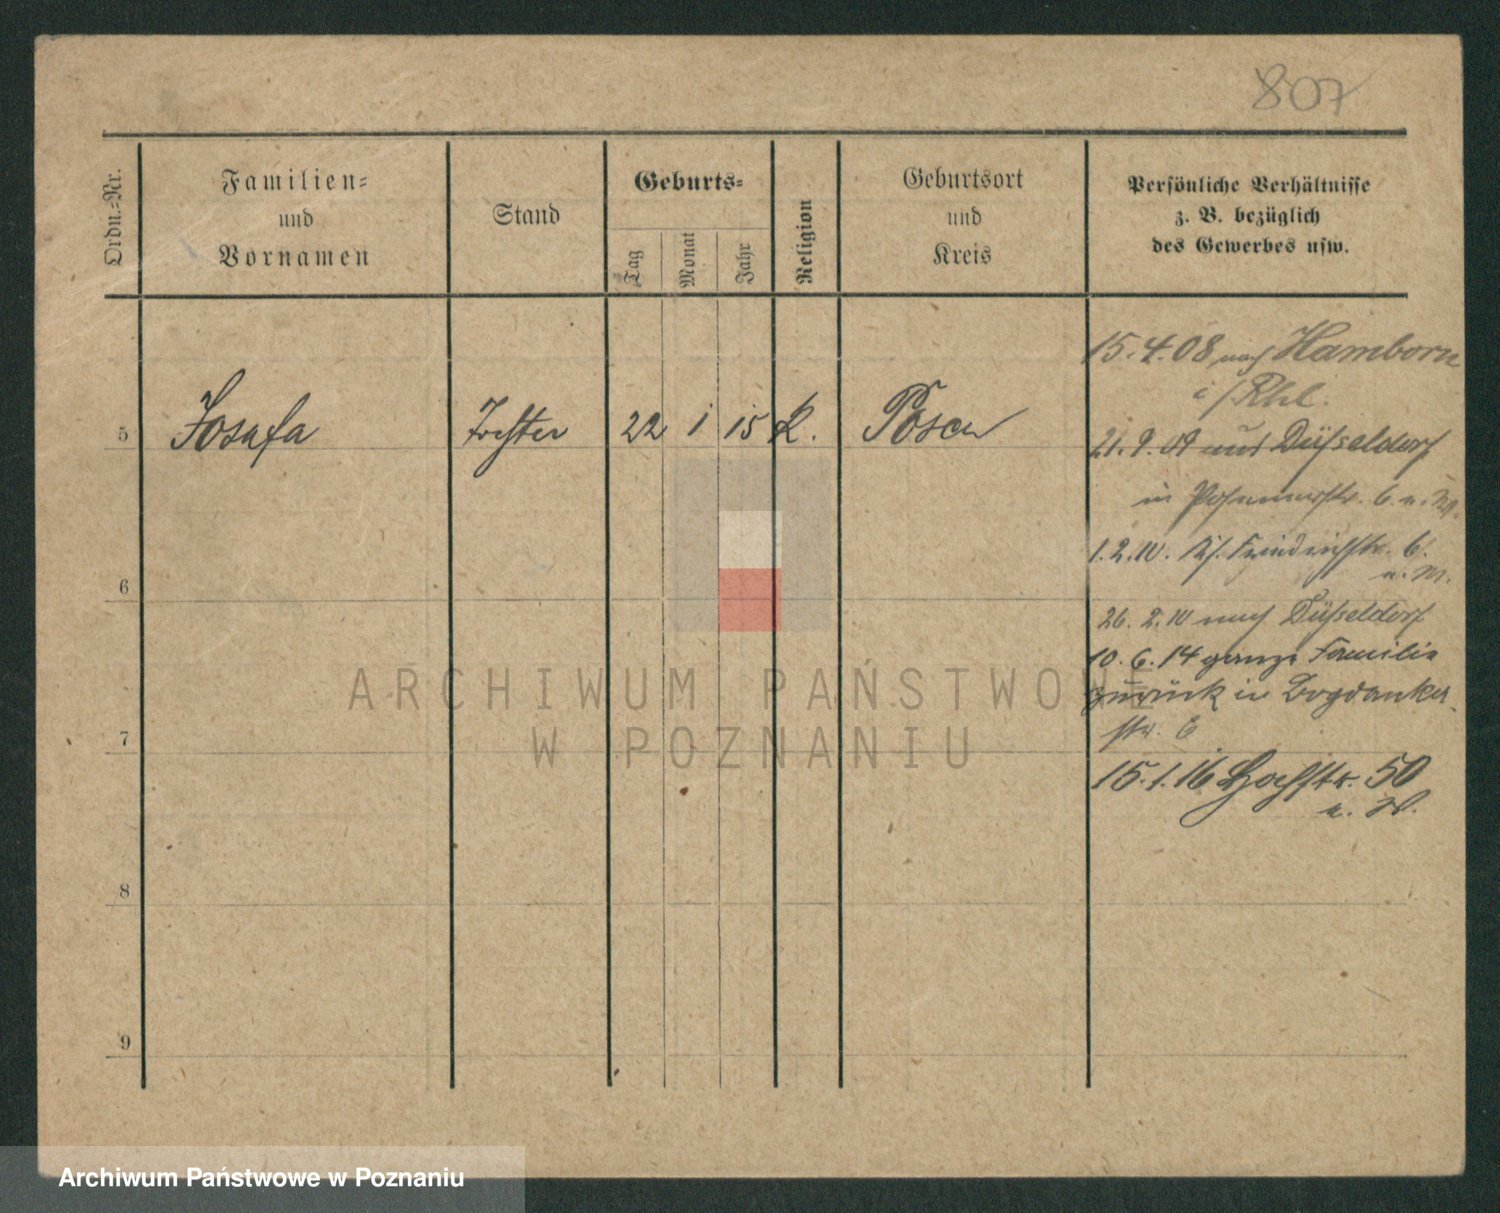 807
Ordn.-Nr.
Familien-
und
Vornamen
Stand
Geburts-
Tag
Monat
Jahr
Religion
Geburtsort
und
Kreis
Persönliche Verhältnisse
z. B. bezüglich
des Gewerbes usw.
15.4.08 nach Hamborn
i/Rhl.
5 Josefa Tochter 22 1 15 K. Posen
21.9.09 Düsseldorf
in 6
1.2.10. Friedrichstr. 6.
6
26. 2.10 nach Düsseldorf
10. 6. 14 ganze Familie
zurück in Bogdanker
str. 6
7
15.1.16 Hochstr. 50
8
9
ARCHIWUM PAŃSTWOWE
W POZNANIU
Archiwum Państwowe w Poznaniu